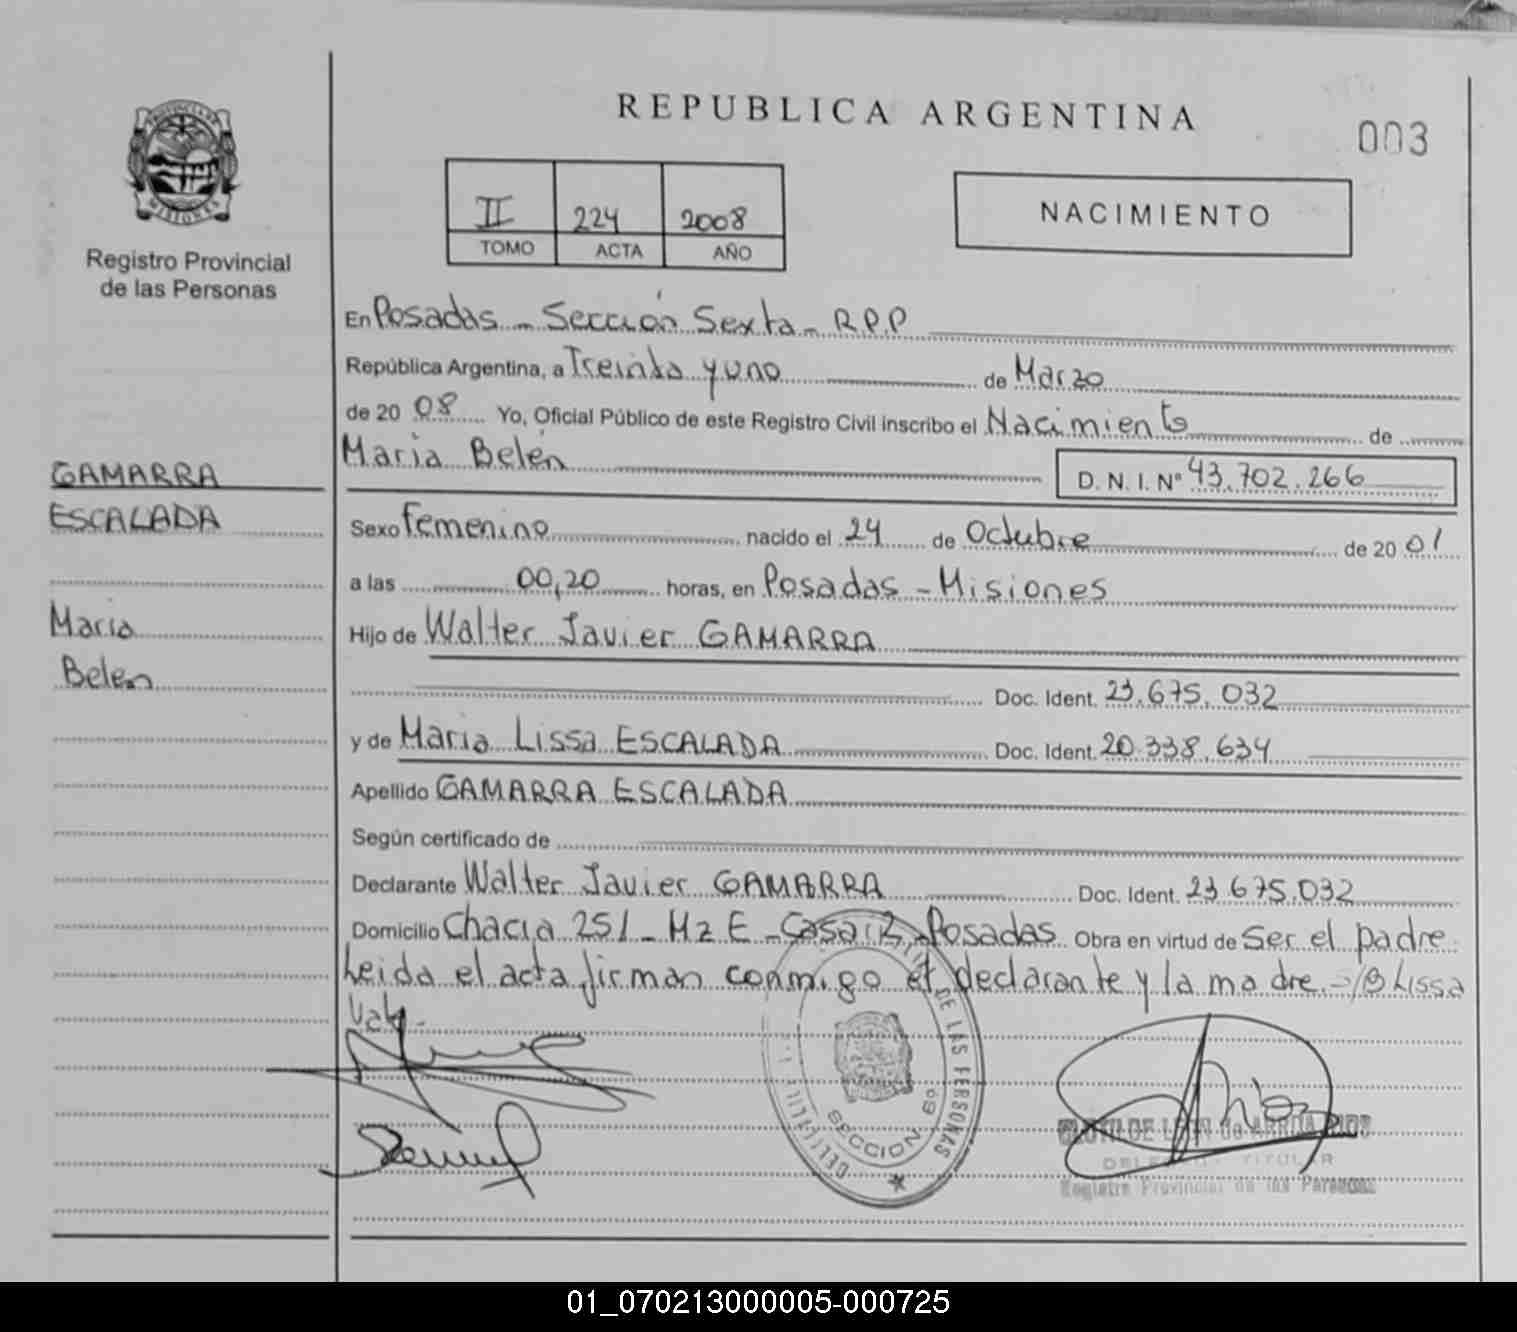 REPUBLICA ARGENTINA
003
PROVINCIA DE
MISIONES
Registro Provincial
de las Personas
II 224 2008
TOMO ACTA AÑO
NACIMIENTO
En Posadas - Sección Sexta - R.P.P
República Argentina, a Treinta y uno de Marzo
de 20 08 Yo, Oficial Público de este Registro Civil inscribo el Nacimiento de
Maria Belén D. N. I. N° 43.702.266
GAMARRA
ESCALADA
Maria
Belen
Sexo femenino nacido el 24 de Octubre de 20 01
a las 00,20 horas, en Posadas - Misiones
Hijo de Walter Javier GAMARRA
Doc. Ident. 23.675.032
y de Maria Lissa ESCALADA Doc. Ident. 20.338.634
Apellido GAMARRA ESCALADA
Según certificado de
Declarante Walter Javier GAMARRA Doc. Ident. 23.675.032
Domicilio Chacra 251 - Mz E - Casa 2 - Posadas Obra en virtud de Ser el padre
Leida el acta firman conmigo el declarante y la madre. - Lissa
Vale.
DE LAS PERSONAS
SECCION 6º
DELEGADA TITULAR
Registro Provincial de las Personas
01_070213000005-000725